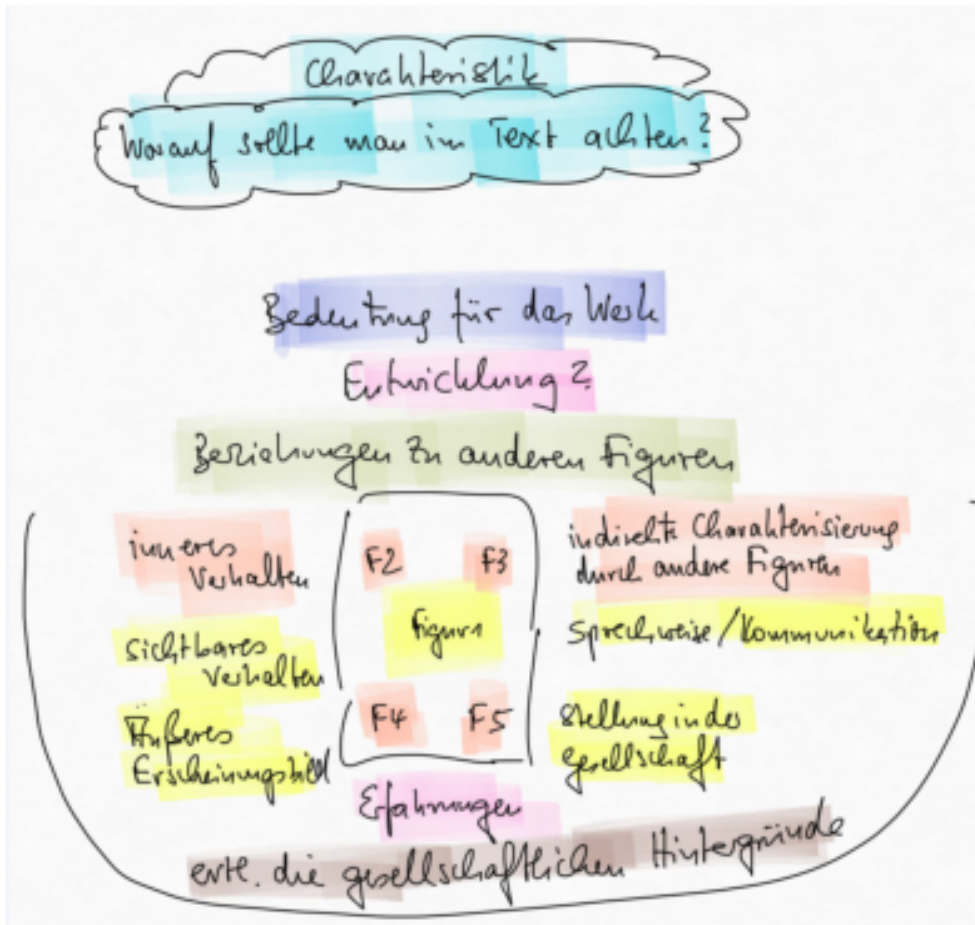 Charakteristik
Worauf sollte man im Text achten?
Bedeutung für das Werk
Entwicklung?
Beziehungen zu anderen Figuren
inneres
Verhalten
sichtbares
Verhalten
Äußeres
Erscheinungsbild
F2 F3
Figur 1
F4 F5
indirekte Charakterisierung
durch andere Figuren
Sprechweise/Kommunikation
Stellung in der
Gesellschaft
Erfahrungen
evtl. die gesellschaftlichen Hintergründe